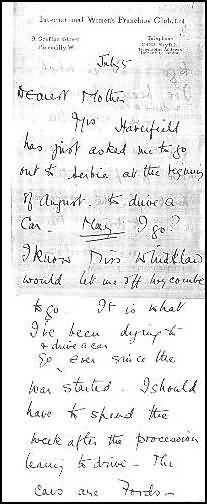 International Women's Franchise Club, Ltd
9 Grafton Street
Piccadilly, W.
Telephone
Mayfair
July 5
Dearest Mother
Mrs Haverfield
has just asked me to go
out to Serbia at the beginning
of August. to drive a
car. May I go?
I know Miss Whitelaw
would let me off Wycombe
to go. It is what
I've been dying to
& drive a car
Go ever since the
war started. I should
have to spend the
week after the procession
learning to drive - The
cars are Fords -